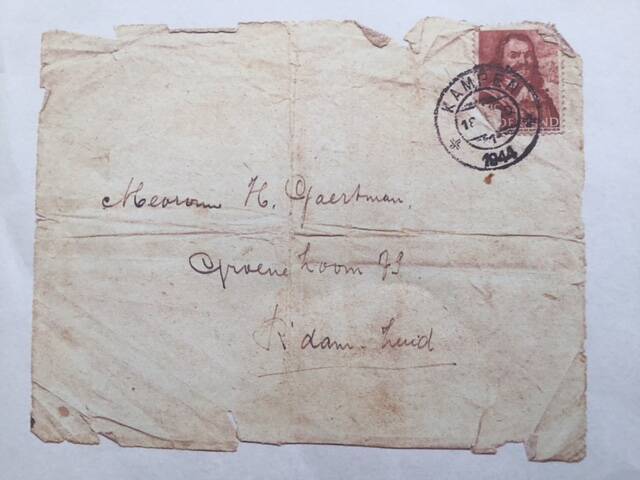 KAMPEN
1944
Mevrouw H. Gaertman.
Groene Zoom 73.
R'dam-Zuid